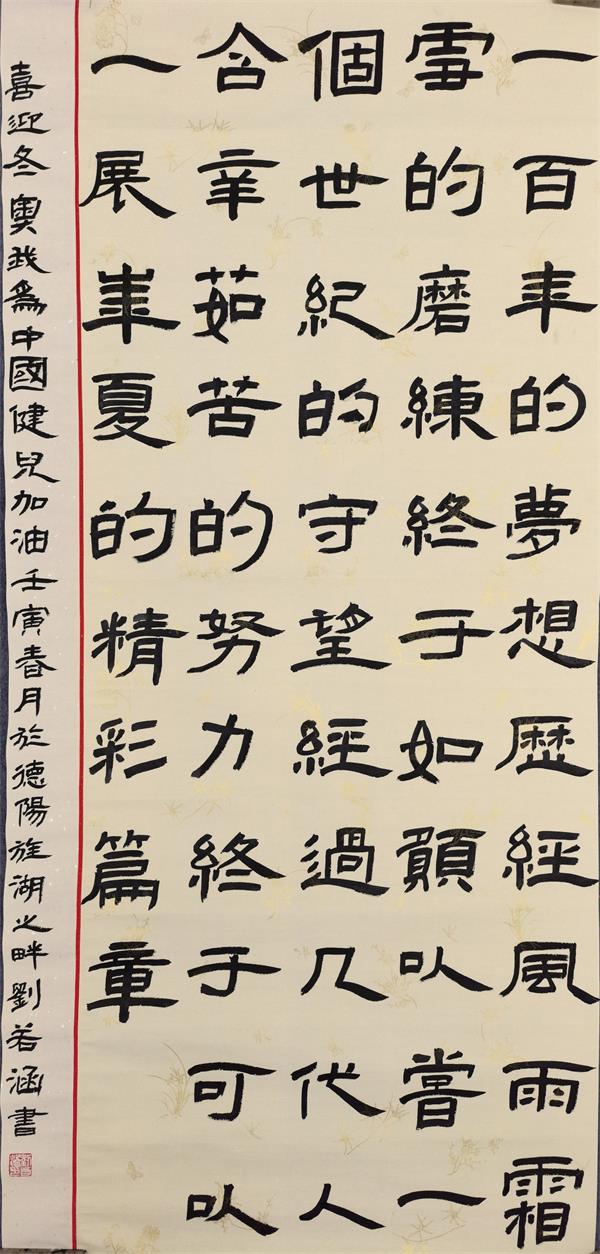 一百年的夢想歷經風雨霜
雪的磨練終于如願以嘗一
個世紀的守望經過几代人
含辛茹苦的努力終于可以
一展華夏的精彩篇章
喜迎冬奧我為中國健兒加油壬寅春月於德陽旌湖之畔劉若涵書